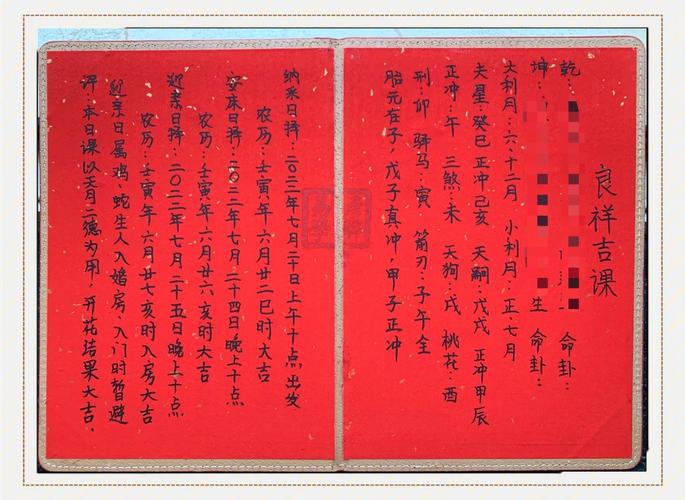 良祥吉课
乾： 命卦：
坤： 生 命卦：
大利月：六·十二月 小利月：正·七月
夫星：癸巳 正冲己亥 天嗣：戊戌 正冲甲辰
正冲：午 三煞：未 天狗：戌 桃花：酉
刑：卯 驿马：寅 箭刃：子午全
胎元在子，戊子真冲，甲子正冲
纳采日择：二〇二二年七月二十日上午十点出发
农历：壬寅年六月廿二巳时大吉
安床日择：二〇二二年七月二十四日晚上十点
农历：壬寅年六月廿六亥时大吉
迎亲日择：二〇二二年七月二十五日晚上十点
农历：壬寅年六月廿七亥时入房大吉
迎亲日属鸡、蛇生人入婚房、入门时暂避
评：本日课以天月二德为用，开花结果大吉．